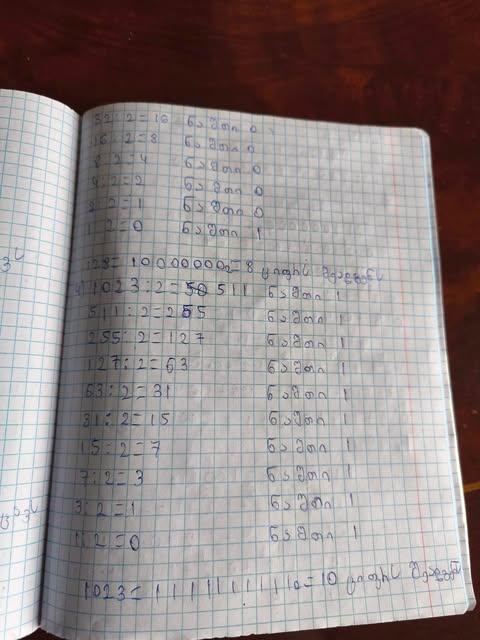 32:2=16 ნაშთი 0
16:2=8 ნაშთი 0
8:2=4 ნაშთი 0
4:2=2 ნაშთი 0
2:2=1 ნაშთი 0
1:2=0 ნაშთი 1
128=10000000₂=8 ციფრის
1023:2=511 ნაშთი 1
511:2=255 ნაშთი 1
255:2=127 ნაშთი 1
127:2=63 ნაშთი 1
63:2=31 ნაშთი 1
31:2=15 ნაშთი 1
15:2=7 ნაშთი 1
7:2=3 ნაშთი 1
3:2=1 ნაშთი 1
1:2=0 ნაშთი 1
1023=1111111111₂=10 ციფრის